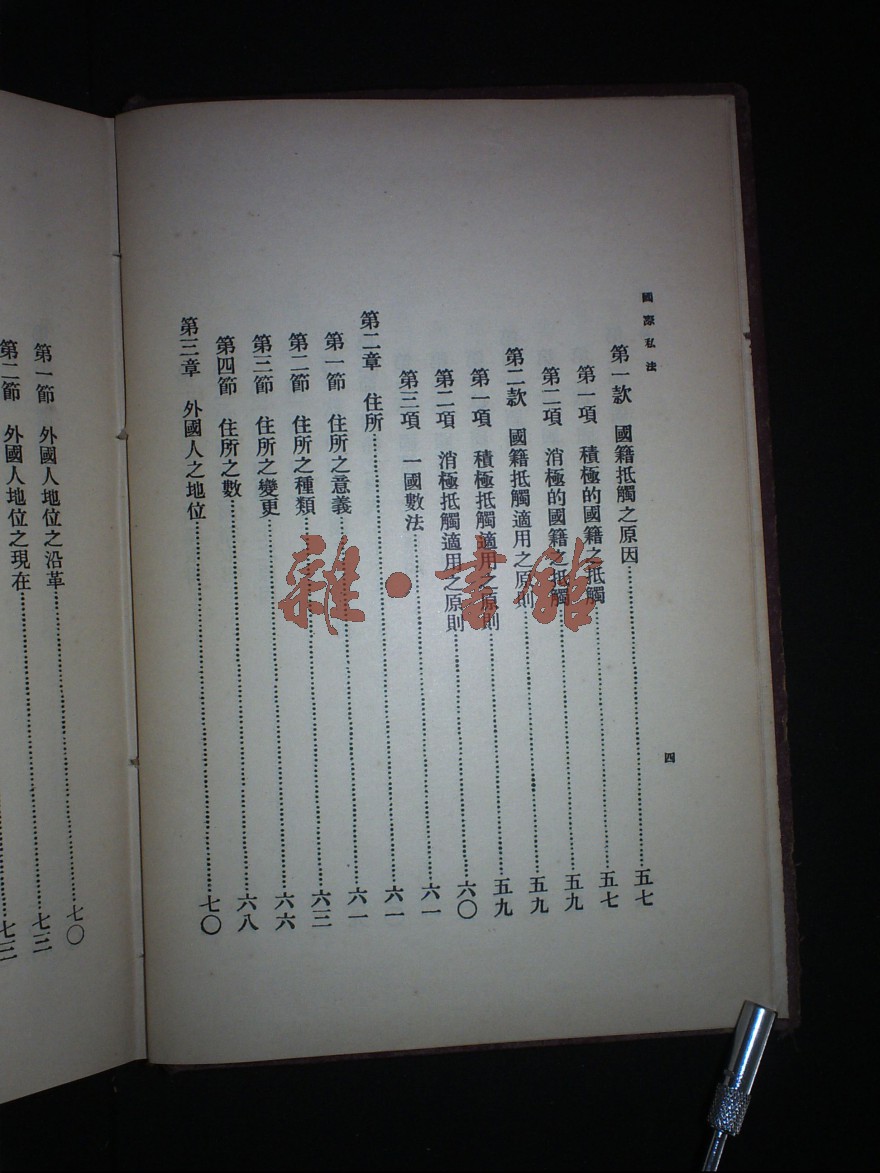 國際私法
四
第一款 國籍抵觸之原因……五七
第一項 積極的國籍之抵觸……五七
第二項 消極的國籍之抵觸……五九
第二款 國籍抵觸適用之原則……五九
第一項 積極抵觸適用之原則……五九
第二項 消極抵觸適用之原則……六〇
第三項 一國數法……六一
第二章 住所……六一
第一節 住所之意義……六一
第二節 住所之種類……六三
第三節 住所之變更……六六
第四節 住所之數……六八
第三章 外國人之地位……七〇
第一節 外國人地位之沿革……七〇
第二節 外國人地位之現在……七三
七三
雜·書館